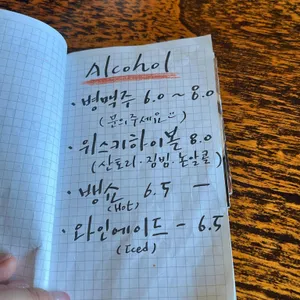 Alcohol
· 병맥주 6.0 ~ 8.0
(문의주세요 :)
· 위스키하이볼 8.0
(산토리 · 짐빔 · 논알콜)
· 뱅쇼 6.5 —
(Hot)
· 와인에이드 - 6.5
(Iced)